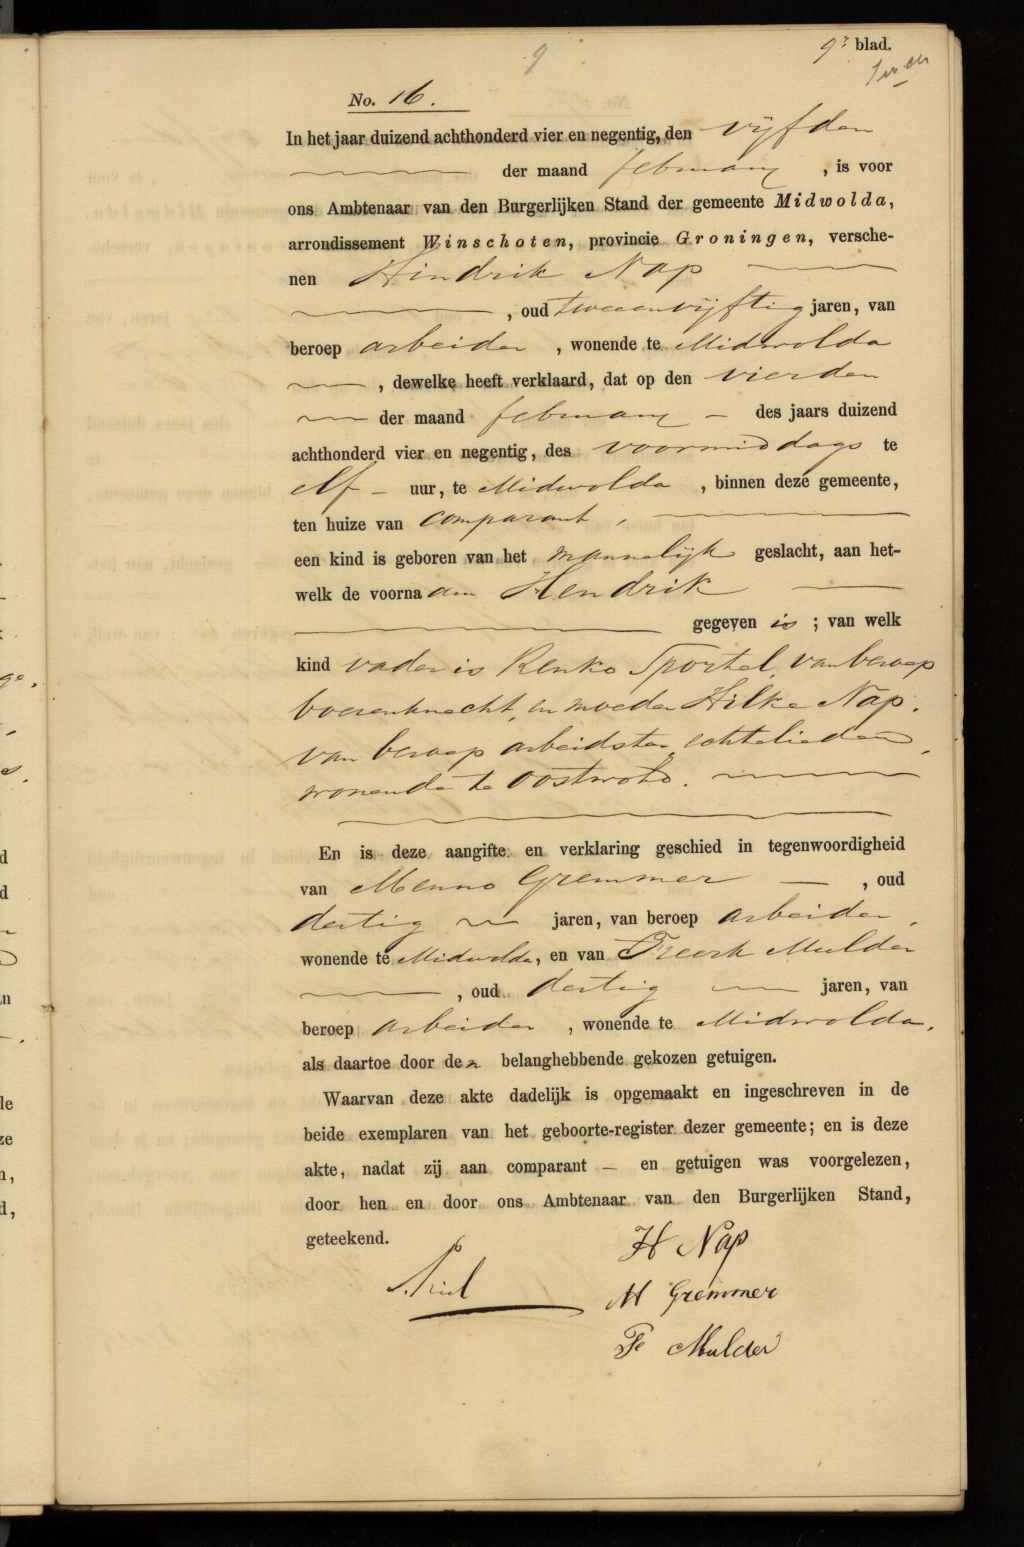 9
9e blad.
No. 16.
In het jaar duizend achthonderd vier en negentig, den vijfden
der maand februarij, is voor
ons Ambtenaar van den Burgerlijken Stand der gemeente Midwolda,
arrondissement Winschoten, provincie Groningen, versche-
nen Hindrik Nap
, oud tweeenvijftig jaren, van
beroep arbeider, wonende te Midwolda
, dewelke heeft verklaard, dat op den vierden
der maand februarij - des jaars duizend
achthonderd vier en negentig, des voormiddags te
elf - uur, te Midwolda, binnen deze gemeente,
ten huize van comparant,
een kind is geboren van het mannelijk geslacht, aan het-
welk de voornaam Hendrik
gegeven is; van welk
kind vader is Renko Sportel, van beroep
boerenknecht, en moeder Hilke Nap,
van beroep arbeidster, echtelieden,
wonende te Oostwold.
En is deze aangifte en verklaring geschied in tegenwoordigheid
van Menno Gremmer —, oud
dertig jaren, van beroep arbeider,
wonende te Midwolda, en van Freerk Mulder
, oud dertig jaren, van
beroep arbeider, wonende te Midwolda,
als daartoe door den belanghebbende gekozen getuigen.
Waarvan deze akte dadelijk is opgemaakt en ingeschreven in de
beide exemplaren van het geboorte-register dezer gemeente; en is deze
akte, nadat zij aan comparant — en getuigen was voorgelezen,
door hen en door ons Ambtenaar van den Burgerlijken Stand,
geteekend.
H Nap
M Gremmer
Fe Mulder